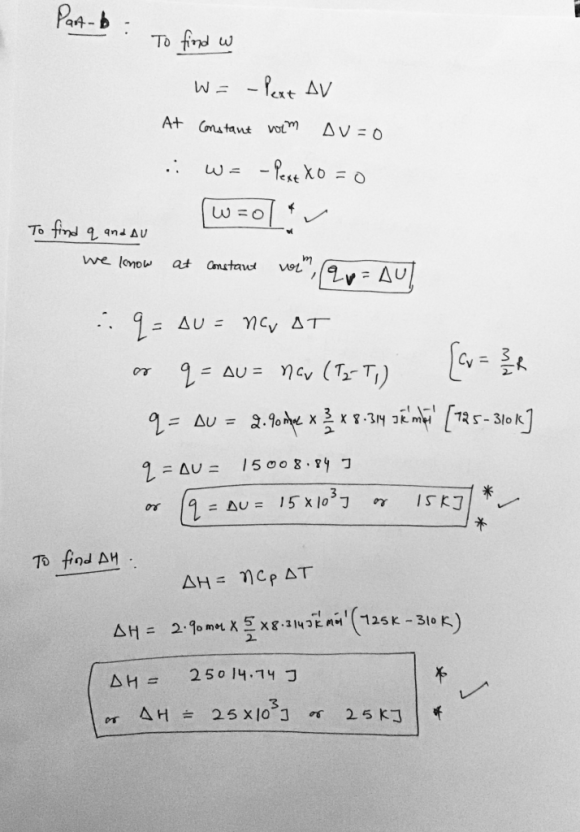 Part-b :
To find w
W = - Pext ΔV
At constant volm ΔV = 0
∴ W = - Pext X 0 = 0
W = 0 * * ✓
To find q and ΔU
we know at constant volm, qv = ΔU
∴ q = ΔU = nCv ΔT
or q = ΔU = nCv (T2-T1) [Cv = 3/2 R
q = ΔU = 2.90 mol x 3/2 x 8.314 JK⁻¹ mol⁻¹ [725-310K]
q = ΔU = 15008.84 J
or q = ΔU = 15 x 10³ J or 15 KJ * * ✓
To find ΔH :
ΔH = nCp ΔT
ΔH = 2.90 mol x 5/2 x 8.314 JK⁻¹ mol⁻¹ (725K - 310K)
ΔH = 25014.74 J *
or ΔH = 25 x 10³ J or 25 KJ * ✓